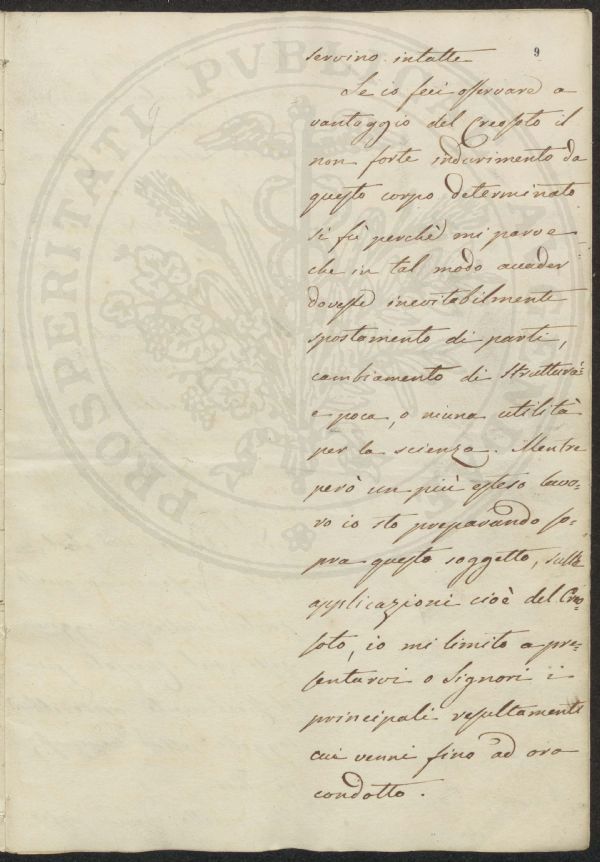 9
servino intatte
Se io feci osservare a
vantaggio del Creosoto il
non forte indurimento da
questo corpo determinato
si fù perchè mi parve
che in tal modo accader
dovesse inevitabilmente
spostamento di parti,
cambiamento di Struttura
e poca, o niuna utilità
per la scienza. Mentre
però un più esteso lavo=
ro io sto preparando so=
pra questo soggetto, sulle
applicazioni cioè del Creo=
soto, io mi limito a pre=
sentarvi o Signori i
principali resultamenti
cui venni fino ad ora
condotto.
PROSPERITATI PVBLICAE